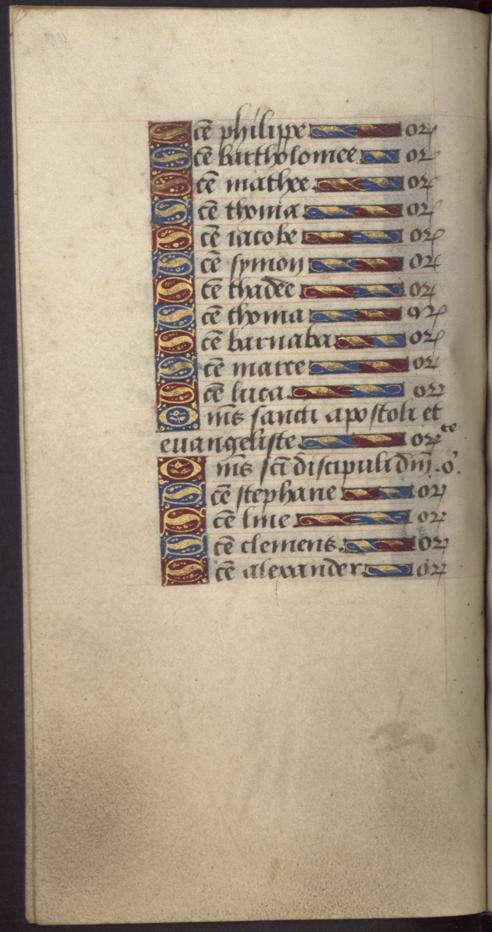 Sce philippe or
Sce bartholomee or
Sce mathee or
Sce thoma or
Sce iacobe or
Sce symon or
Sce thadee or
Sce thoma or
Sce barnaba or
Sce marce or
Sce luca or
Oms sancti apostoli et
euangeliste or
Oms sci discipuli dni o
Sce stephane or
Sce line or
Sce clemens or
Sce alexander or